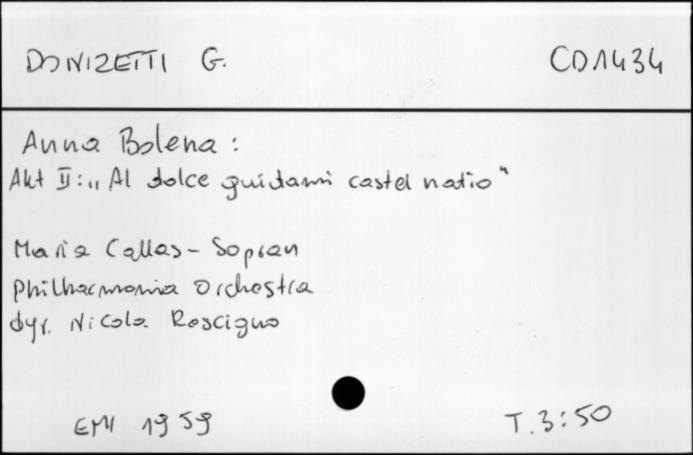 DONIZETTI G. CD1434
Anna Bolena:
Akt II: „Al dolce guidami castel natio"
Maria Callas - Sopran
Philharmonia Orchestra
dyr. Nicola Rescigno
EMI 1959 T. 3:50